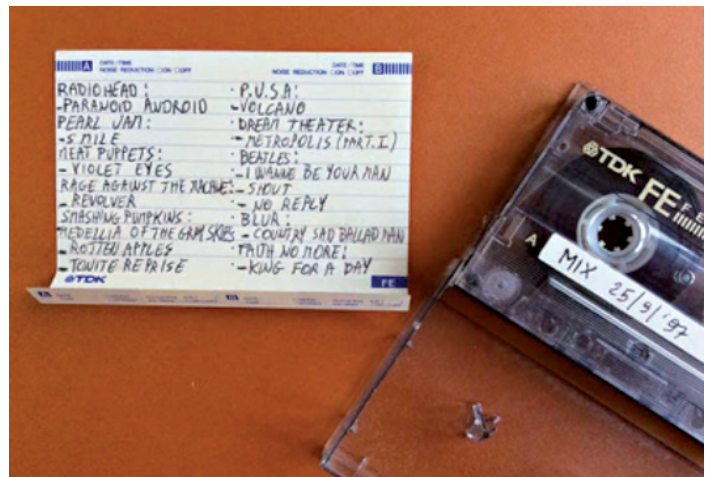 A DATE/TIME
NOISE REDUCTION □ON □OFF
DATE/TIME B
NOISE REDUCTION □ON □OFF
RADIOHEAD:
-PARANOID ANDROID
PEARL JAM:
-SMILE
MEAT PUPPETS:
- VIOLET EYES
RAGE AGAINST THE MACHINE:
- REVOLVER
SMASHING PUMPKINS:
MEDELLIA OF THE GRAY SKIES
- ROTTEN APPLES
- TONITE REPRISE
· P.U.S.A:
-VOLCANO
· DREAM THEATER:
- METROPOLIS (PART. I)
· BEATLES:
- I WANNE BE YOUR MAN
- SHOUT
- NO REPLY
· BLUR:
- COUNTRY SAD BALLAD MAN
· FAITH NO MORE:
-KING FOR A DAY
TDK
FE
A
B
TDK
FE
A
MIX 25/9/'97